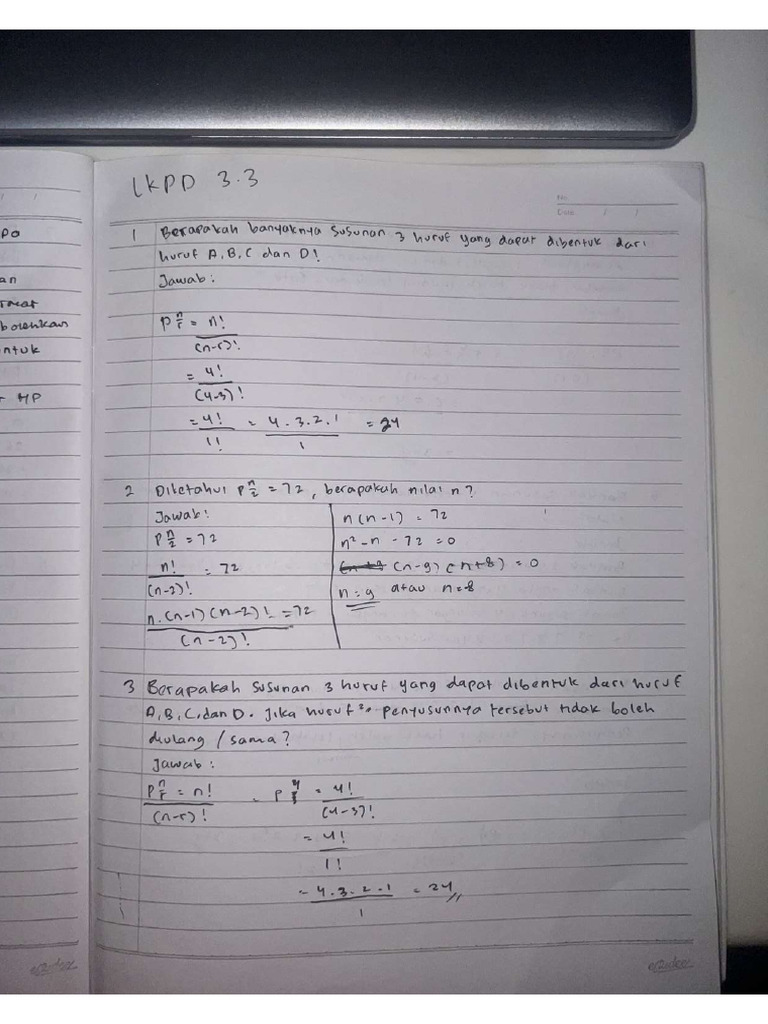 LKPD 3.3
No
Date / /
1 Berapakah banyaknya susunan 3 huruf yang dapat dibentuk dari
huruf A, B, C dan D!
Jawab:
P n r = n!
(n-r)!
= 4!
(4-3)!
= 4! = 4.3.2.1 = 24
1! 1
2 Diketahui P n 2 = 72, berapakah nilai n?
Jawab:
P n 2 = 72
n! = 72
(n-2)!
n.(n-1)(n-2)! = 72
(n-2)!
n(n-1) = 72
n² - n - 72 = 0
(n-9)(n+8) = 0
n = 9 atau n=-8
3 Berapakah susunan 3 huruf yang dapat dibentuk dari huruf
A, B, C, dan D. Jika huruf² penyusunnya tersebut tidak boleh
diulang / sama?
Jawab:
P n r = n! = P 4 3 = 4!
(n-r)! (4-3)!
= 4!
1!
= 4.3.2.1 = 24
1
an
bolehkan
ntuk
HP